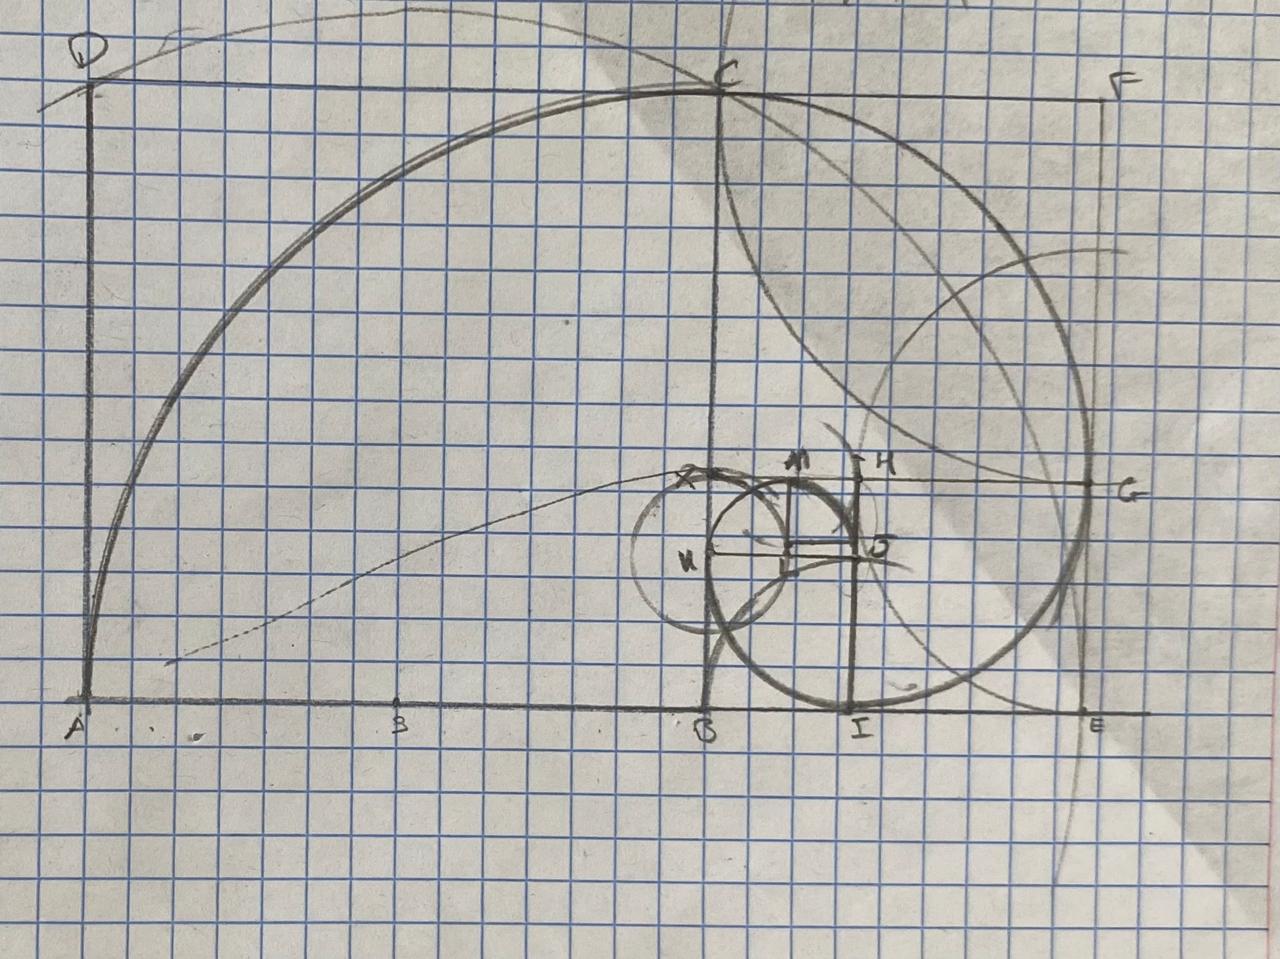 D C F
M H
G
K J
L
A B B I E